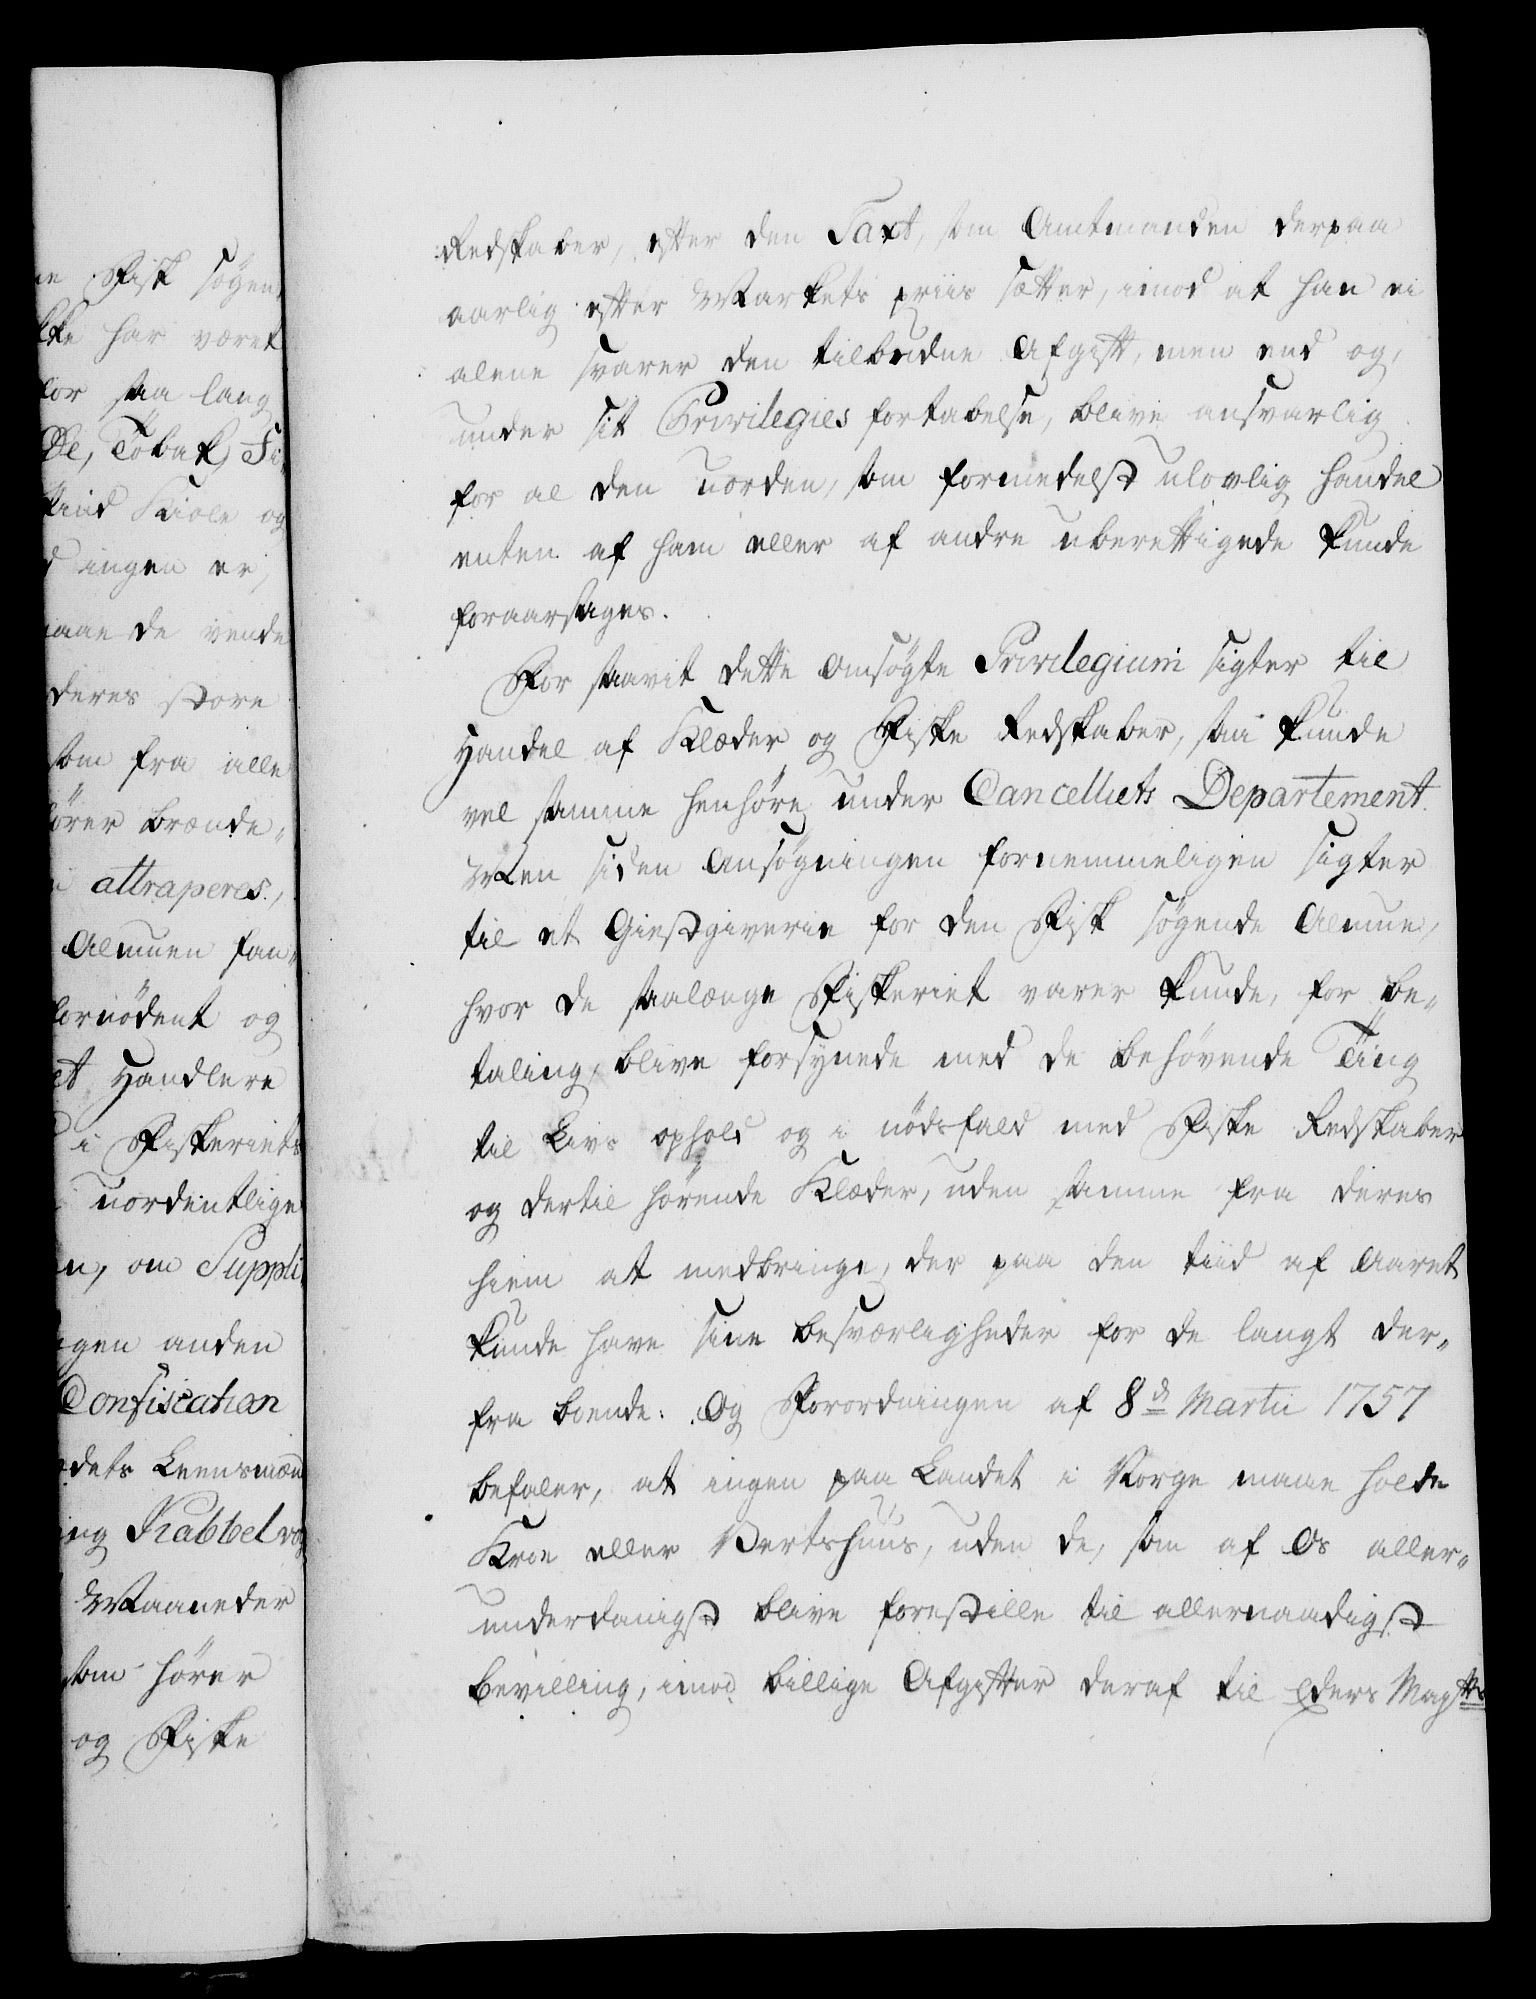 ne Fisk søgen,
kke har været
for saa lang
Øl, Tobak, Fi-
skind Kiole og
d ingen er,
maae de vende
deres store
som fra alle
fører Brænde-
attraperes,
Almuen fan-
fornødent og
et Handlere
i Fiskeriets
uordentlige
n, om Suppli
ngen anden
Confiscation
edets Leensmænd
ng Kabbelvog
Maaneder
som hører
og Fiske
Redskaber, efter den Taxt, som Amtmanden derpaa
aarlig efter Markets priis sætter, imod at han ei
alene svarer den tilbudne Afgift, men end og,
under sit Privilegies fortabelse, blive ansvarlig
for al den Uorden, som formedelst ulovlig Handel
enten af ham eller af andre uberettigede kunde
foraarsages.
For saavit dette ansøgte Privilegium sigter til
Handel af Klæder og Fiske Redskaber, saa kunde
vel samme henhøre under Cancelliets Departement.
Men siden Ansøgningen fornemmeligen sigter
til et Giestgiverie for den Fisk søgende Almue,
hvor de saalænge Fiskeriet varer kunde, for be-
taling, blive forsynede med de behøvende Ting
til Livs ophold og i nødsfald med Fiske Redskaber
og dertil hørende Klæder, uden samme fra deres
hiem at medbringe, der paa den tiid af Aaret
kunde have sine besværligheder for de langt der-
fra boende. Og Forordningen af 8de Martii 1757
befaler, at ingen paa Landet i Norge maae holde
Kroe eller Vertshuus, uden de, som af Os aller-
underdanigst blive forestille til allernaadigst
bevilling, imod billige Afgifter deraf til Eders Maysts